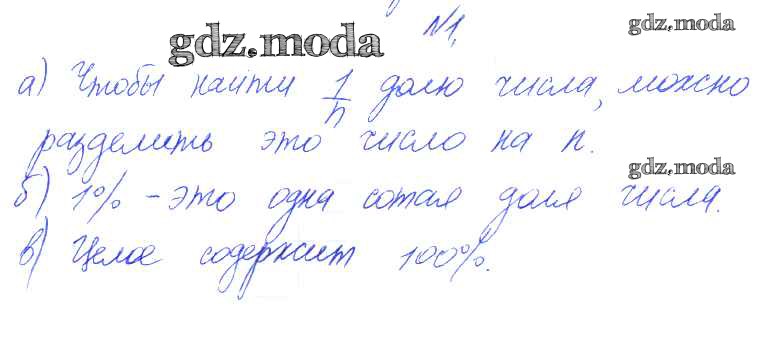 №1.
gdz.moda
gdz.moda
а) Чтобы найти 1/n долю числа, можно
разделить это число на n.
gdz.moda
б) 1% - это одна сотая доля числа.
в) Целое содержит 100%.